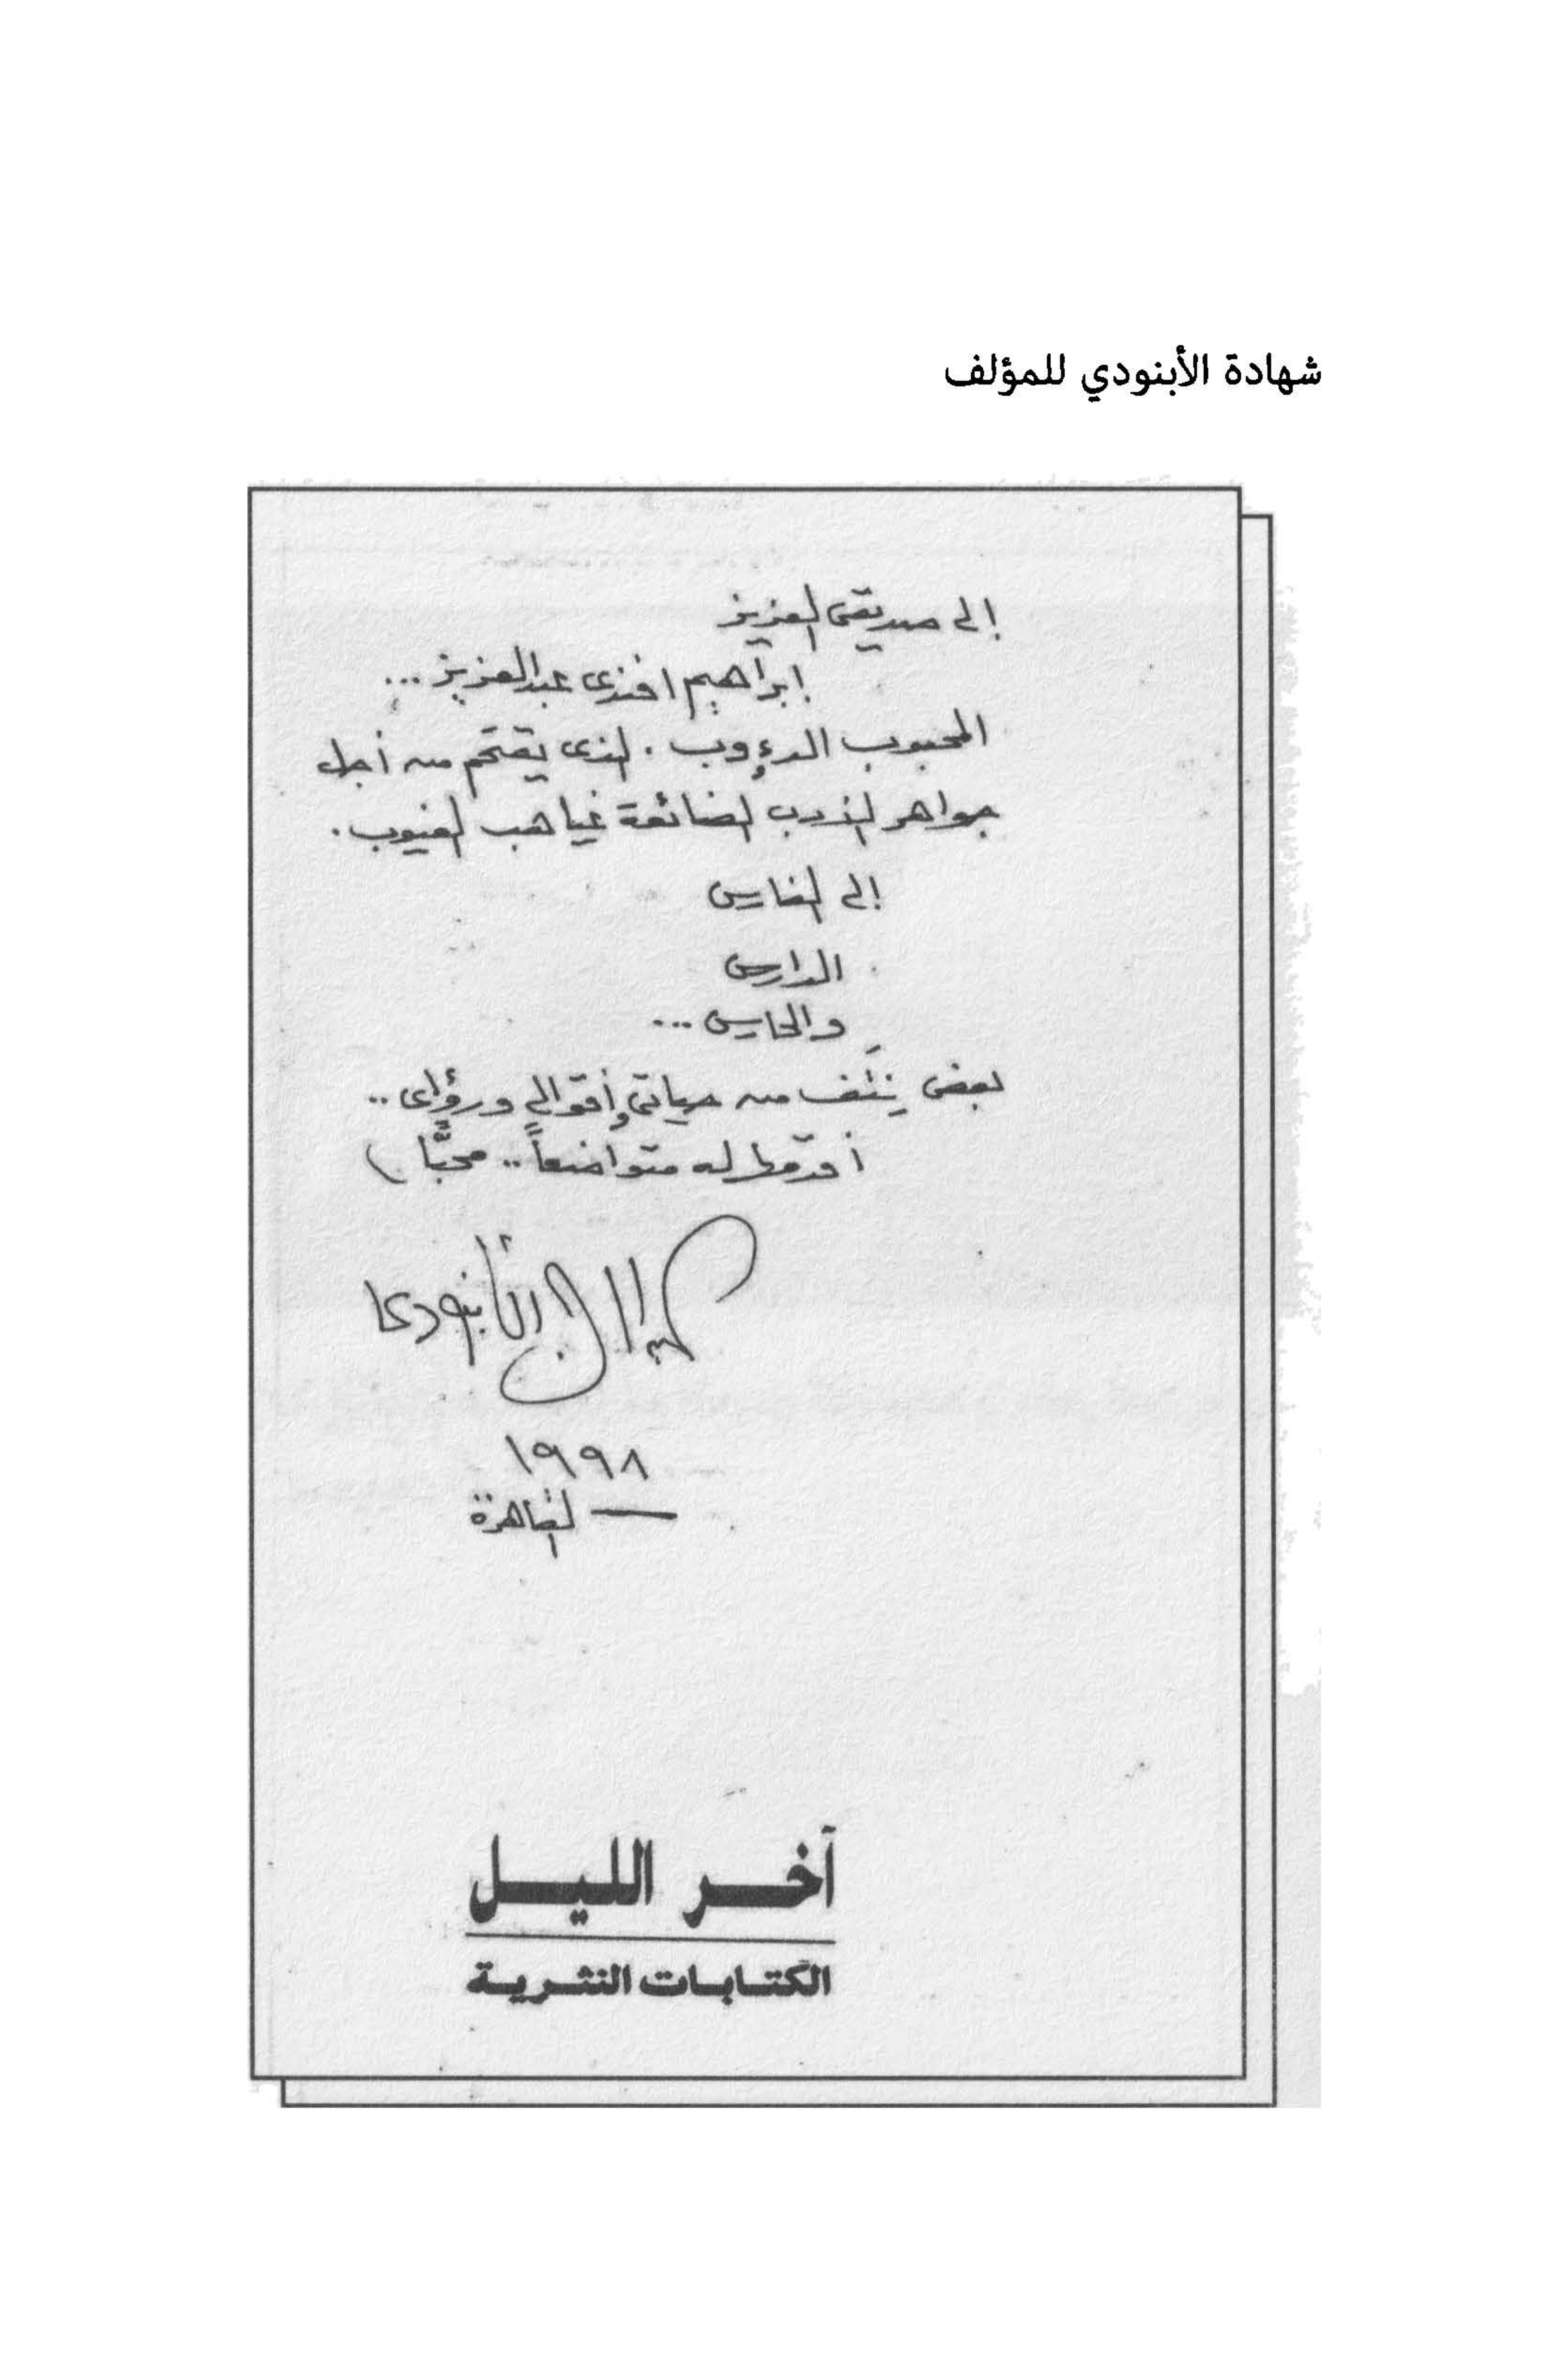 شهادة الأبنودي للمؤلف
إلى صديقى العزيز
ابراهيم افندى عبدالعزيز ...
المحبوب الدءوب . الذى يقتحم من أجل
جواهر الأدب الضائعة غياهب الغيوب .
إلى الفارس
الدارس
والحارس ...
بعض نِتَف من حياتى وأقوالى ورؤاى ..
أقدّمها له متواضعاً .. محبًّا )
الأبنودى
١٩٩٨
— القاهرة
آخر الليل
الكتابات النثرية